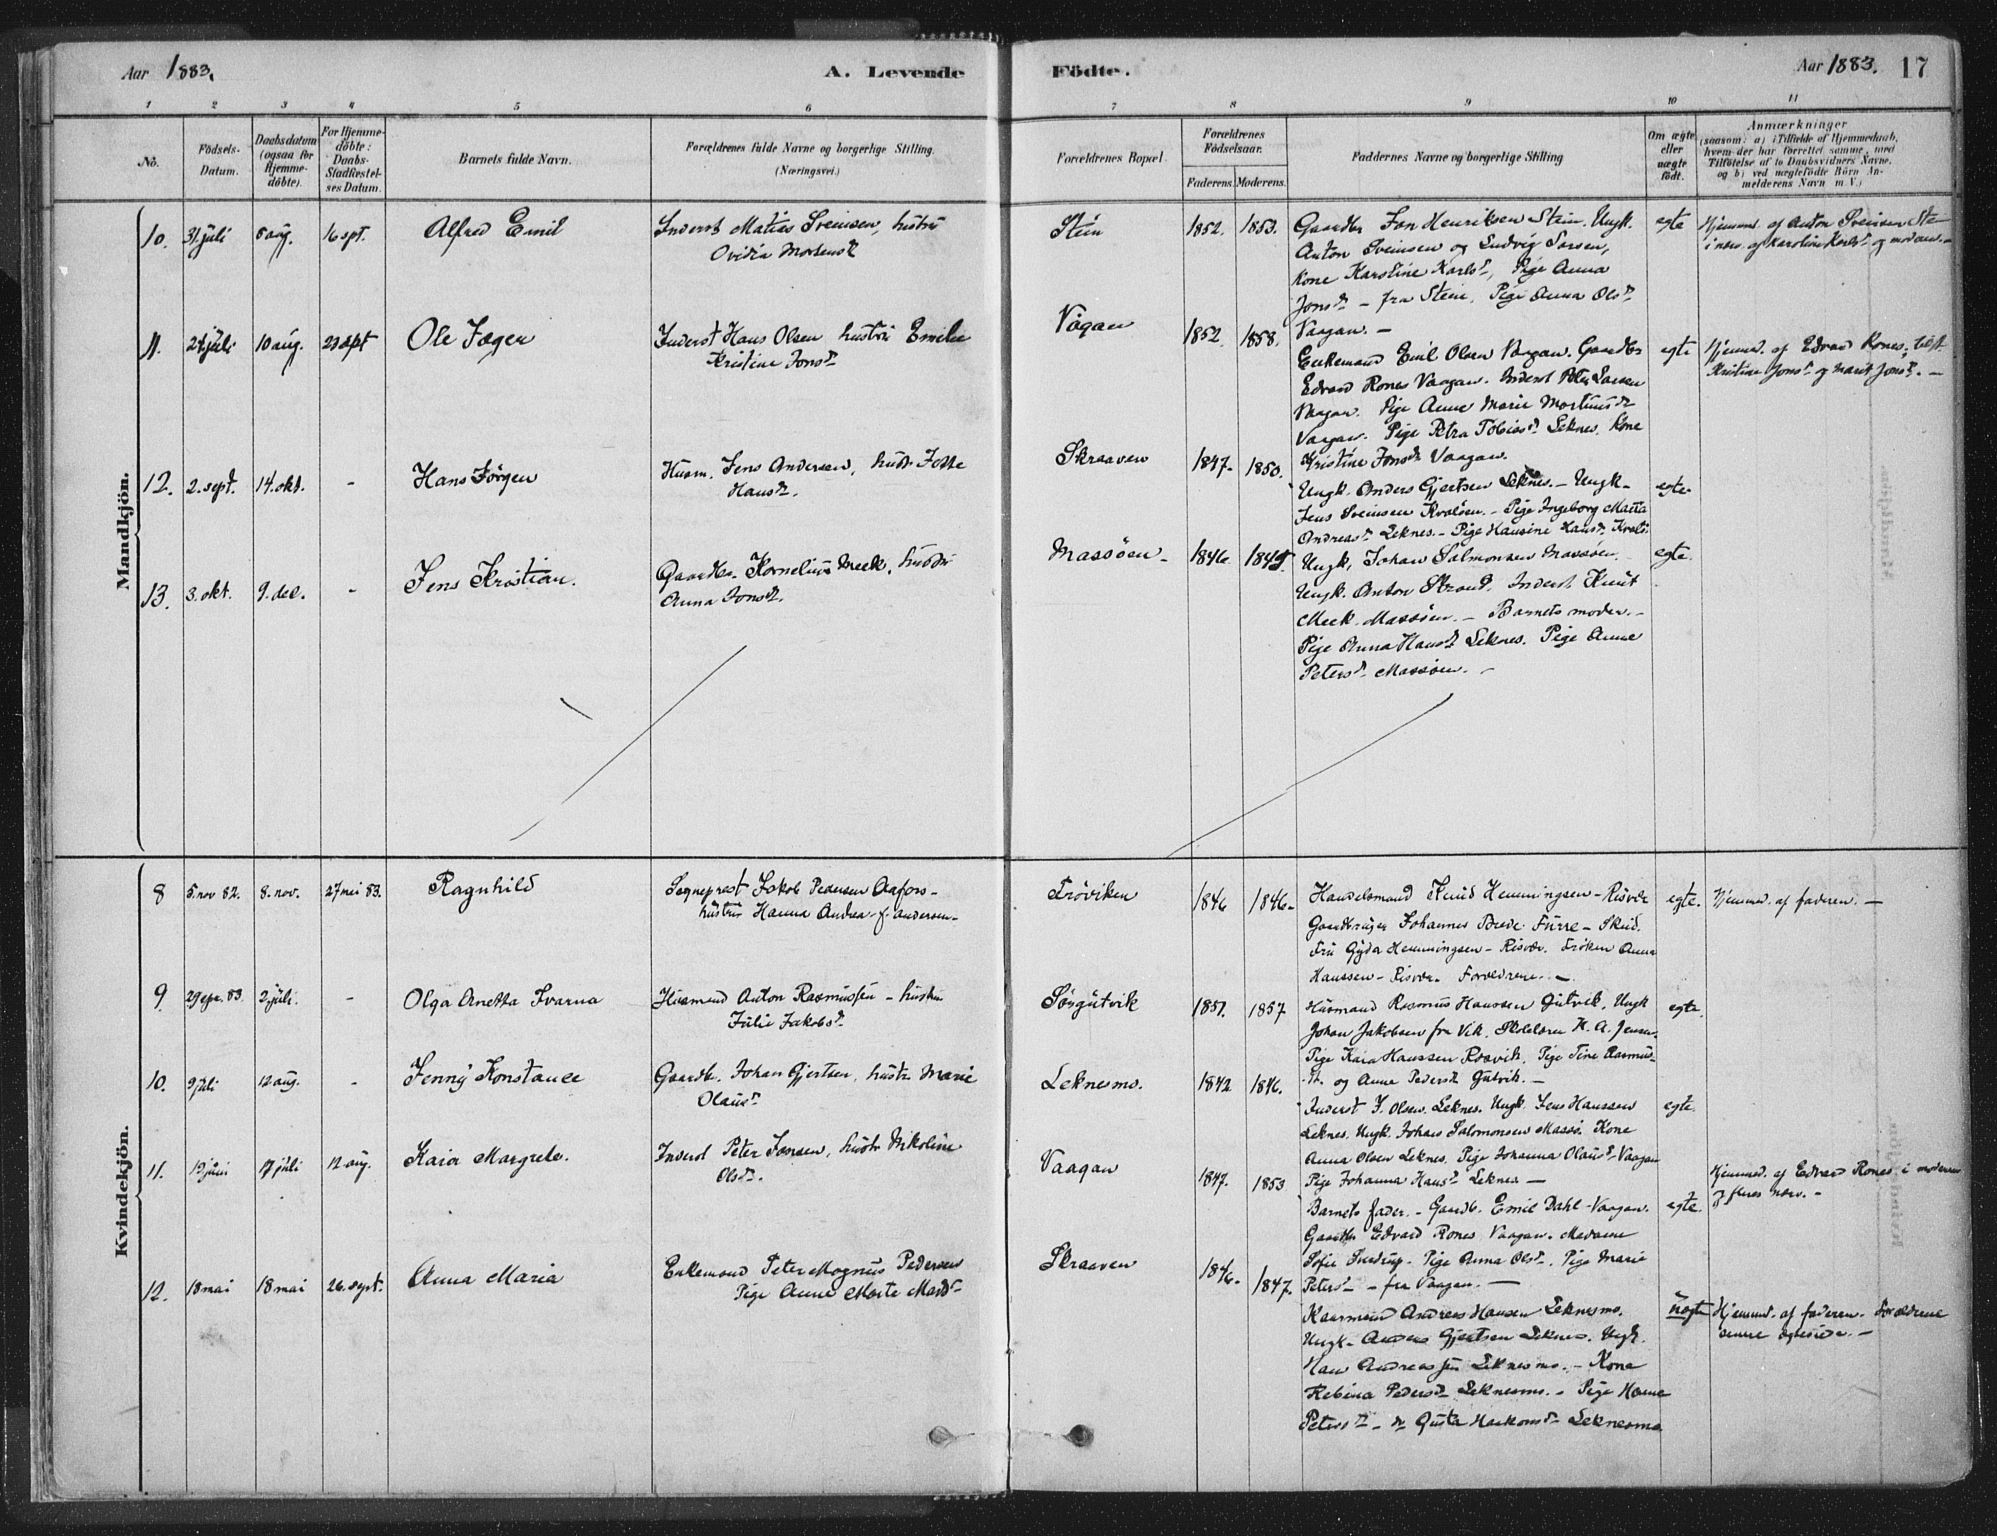 Aar 1883.
A. Levende Födte.
Aar 1883. 17
1 2 3 4 5 6 7 8 9 10 11
No.
Födsels-Datum.
Daabsdatum (ogsaa for Hjemmedöbte).
For Hjemmedöbte: Daabs-Stadfæstelses Datum.
Barnets fulde Navn.
Forældrenes fulde Navne og borgerlige Stilling. (Næringsvei.)
Forældrenes Bopæl.
Forældrenes Födselsaar.
Faderens. Moderens.
Faddernes Navne og borgerlige Stilling
Om ægte eller uægte födt.
Anmærkninger
(saasom: a) i Tilfælde af Hjemmedaab, hvem der har forrettet samme, med Tilföielse af to Daabsvidners Navne, og b) ved uægtefödte Börn Anmelderens Navn m. V.)
Mandkjön.
10. 31 juli 5 aug. 16 spt. Alfred Emil
Inderst Matias Sveinsen, hustru
Ovidia Mortensdr
Stein 1852. 1853.
Gaardbr Jon Henriksen Stein. Ungk.
Anton Sveinsen og Ludvig Larsen,
Kone Karoline Karlsdr, Pige Anna
Jonsdr – fra Stein, Pige Anna Olsdr
Vaagan. –
egte
Hjemmed. af Anton Sveinsen Ste
i nærv. af Karoline Karlsdr og moderen. –
11. 24 juli 10 aug. 23 sept Ole Jæger
Inderst Hans Olsen hustru Emelie
Kristine Jonsdr
Vågan 1852. 1858.
Enkemand Emil Olsen Vaagan. Gaardbr
Edvard Rones Vaagan. Inderst Peter Larsen
Vaagan. Pige Anne Marie Martinusdr
Vaagan. Pige Petra Tobiasdr Leknes. Kone
Kristine Jonsdr Vaagan.
egte
Hjemmed. af Edvard Rones, tilst.
Kristine Jonsdr og Marit Jonsdr. –
12. 2. sept. 14. okt. – Hans Jörgen
Husm. Jens Andersen, hustr
Hansdr.
Skraaven 1847. 1850.
Ungk. Anders Gjertsen Leknes. – Ungk.
Jens Sveinsen Kvalöen. – Pige Ingeborg Marta
Andreasdr Leknes. – Pige Hansine Hansdr Kvalö.
egte.
13. 3. okt. 9. dec. – Jens Kristian.
Gaardbr. Kornelius Meek, hustru
Anna Jonsdr.
Massöen – 1846. 1845.
Ungk. Johan Salmonsen Massöen.
Ungk. Anton Strand. Inderst Knut
Meek. Massöen. – Barnets moder. –
Pige Anna Hansdr Leknes. Pige Anne
Petersdr Massöen. –
egte.
Kvindekjön.
8 5. nov 82. 8. nov. 27 mei 83. Ragnhild
Sogneprest Jakob Pedersen Aafors –
hustru Hanna Andrea f. Andersen –
Tröviken 1846 1846.
Handelsmand Knud Henningsen – Risvær
Gaardbruger Johannes Brede Furre – Skeid.
Fru Gyda Henningsen – Risvær. Fröken Anna
Hanssen – Risvær. Forældrene. –
egte.
Hjemmed. af faderen. –
9 29 apr. 83. 2 juli. – Olga Anetta Ivarna
Husmand Anton Rasmussen – hustru
Julie Jakobsdr.
Sörgutvik 1851. 1857
Husmand Rasmus Hanssen Gutvik. Ungk
Johan Jakobsen fra Vik. Skolelærer H. A. Jensen.
Pige Kaia Hanssen Rosvik. Pige Tine Rasmus-
dr. og Anne Pedersdr Gutvik. –
egte.
10. 9 juli 12 aug. – Jenny Konstance
Gaardb. Johan Gjertsen, hustr Marie
Olausdr
Leknesmo. 1842 1846.
Inderst J. Olsen. Leknes. Ungk. Jens Hanssen
Leknes. Ungk. Johan Salomonsen Massö. Kone
Anna Olsen Leknes. Pige Johanna Olausdr Vaagan
Pige Johanna Hansdr Leknes –
egte.
11. 19 juni 17 juli 12 aug. Kaia Margrete.
Inderst Peter Jonsen, hustr Nikoline
Olsdr.
Vaagan 1847. 1853
Barnets fader. – Gaardb. Emil Dahl – Vaagan.
Gaardbr Edvard Rones Vaagan. Madame
Sofie . Pige Anna Olsdr. Pige Marie
Petersdr – fra Vaagan. –
egte.
Hjemmed. af Edvard Rones i moderen
& fleres nærv. –
12. 18 mai 18 mai 26. sept. Anna Maria
Enkemand Peter Magnus Pedersen
Pige Anne Marta Madsdr
Skraaven 1846. 1847.
Kaarmand Andreas Hansen Leknesmo.
Ungk. Anders Gjertsen Leknes. Ungk.
Hans Andreassen Leknesmo. – Kone
Rebina Pedersdr Leknesmo. – Pige Hanne
Petersdr – & Gusta Haakonsdr Leknesmo
uegte
Hjemmd. af faderen. Forældrene
senere egteviede. –